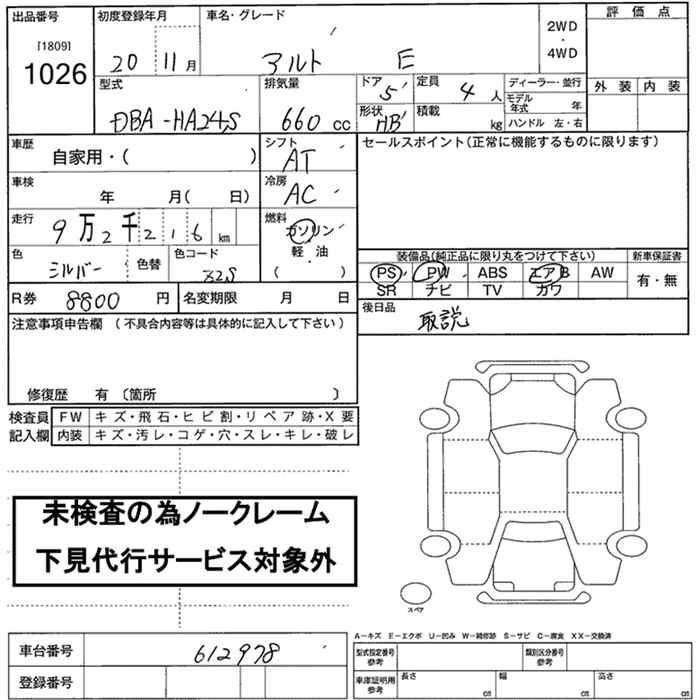 出品番号 初度登録年月 車名・グレード 2WD・4WD 評価点
[1809]
1026 20 11月 アルト E
外装 内装
型式 排気量 ドア 5 定員 4人 ディーラー・並行
DBA-HA24S 660cc 形状 HB 積載 kg モデル年式 年
ハンドル 左・右
車歴 自家用・( ) シフト AT セールスポイント(正常に機能するものに限ります)
車検 年 月( 日) 冷房 AC
走行 9万2千216km 燃料 ガソリン
軽・油
( )
色 シルバー 色替 色コード Z2S
装備品(純正品に限り丸をつけて下さい) 新車保証書
PS PW ABS エアB AW 有・無
SR ナビ TV カワ
R券 8800円 名変期限 月 日 後日品
取説
注意事項申告欄 (不具合内容等は具体的に記入して下さい)
修復歴 有 〔箇所 〕
検査員 FW キズ・飛石・ヒビ割・リペア跡・X要
記入欄 内装 キズ・汚レ・コゲ・穴・スレ・キレ・破レ
未検査の為ノークレーム
下見代行サービス対象外
スペア
A−キズ E−エクボ U−凹み W−補修跡 S−サビ C−腐食 XX−交換済
車台番号 612978 型式指定番号 参考 類別区分番号 参考
登録番号 車庫証明用 参考 長さ cm 幅 cm 高さ cm